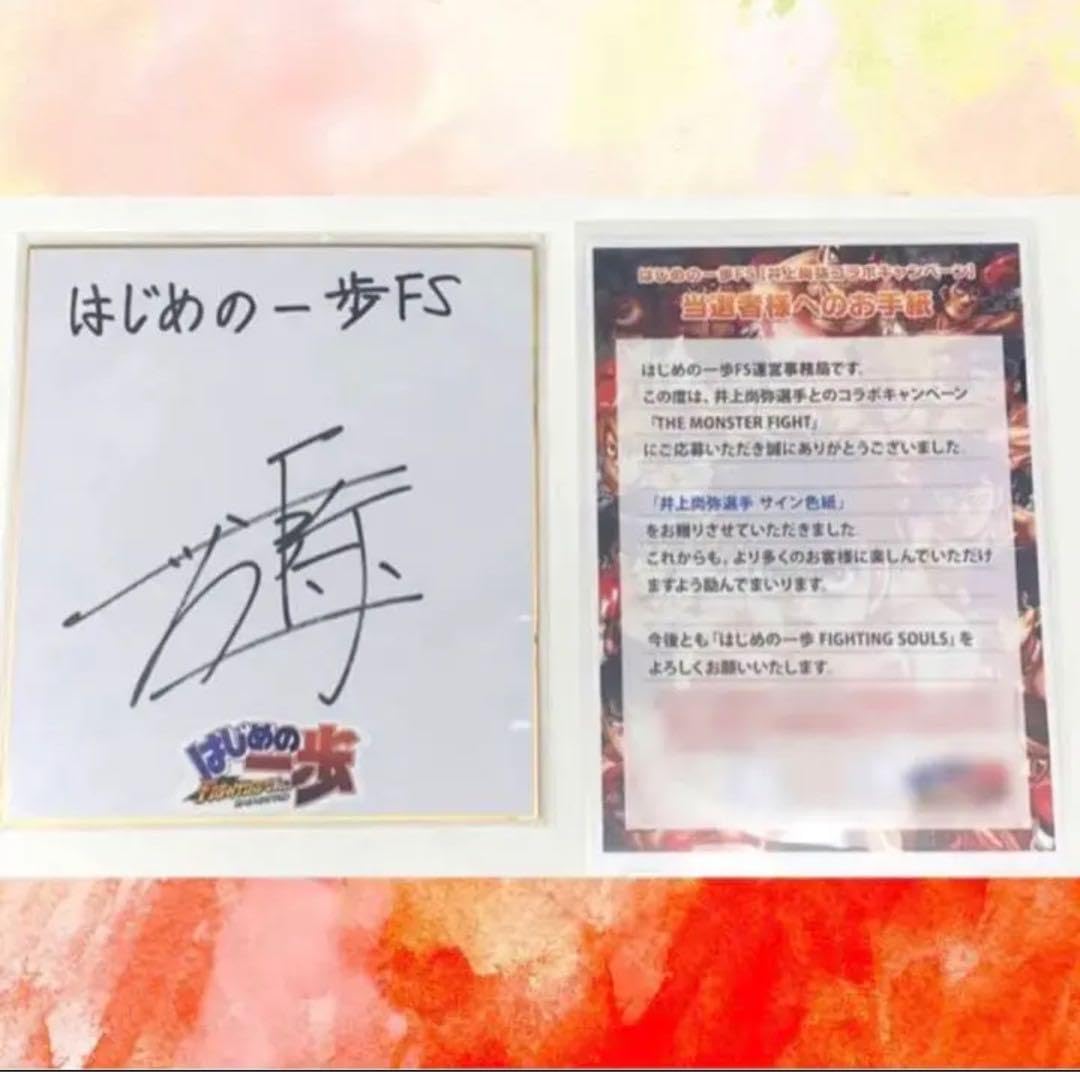 はじめの一歩FS
はじめの
一歩
はじめの一歩FS「井上尚弥コラボキャンペーン」
当選者様へのお手紙
はじめの一歩FS運営事務局です。
この度は、井上尚弥選手とのコラボキャンペーン
「THE MONSTER FIGHT」
にご応募いただき誠にありがとうございました。
「井上尚弥選手 サイン色紙」
をお贈りさせていただきました。
これからも、より多くのお客様に楽しんでいただけ
ますよう励んでまいります。
今後とも「はじめの一歩 FIGHTING SOULS」を
よろしくお願いいたします。